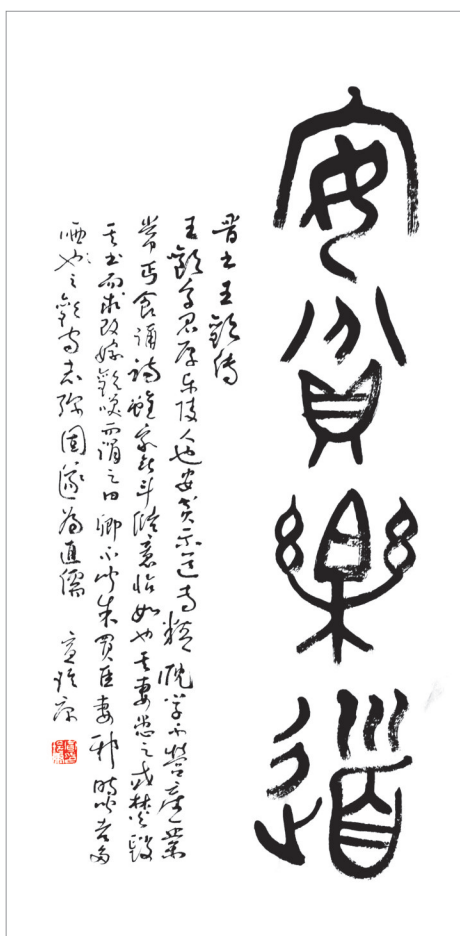 安貧樂道
晉書王歡傳
王歡字君厚樂陵人也安貧樂道專精耽學不營產業
常丐食誦詩雖家無斗儲意怡如也其妻患之或焚毀
其書而求改嫁歡笑而謂之曰卿不聞朱買臣妻邪時聞者多
哂之歡守志彌固遂為通儒